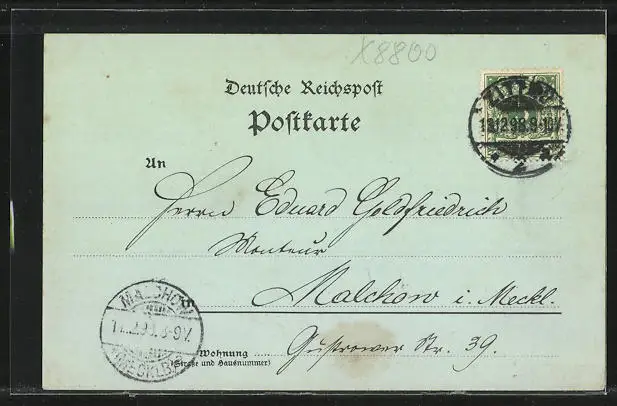 X8800
Deutsche Reichspost
Postkarte
ZITTAU
12 98 8-9 V.
2
An
Herrn Eduard Goldfriedrich
Monteur
in Malchow i. Meckl.
MALCHOW
8-9 V.
(MECKLB)
Wohnung Güstrower Str. 39.
(Straße und Hausnummer)